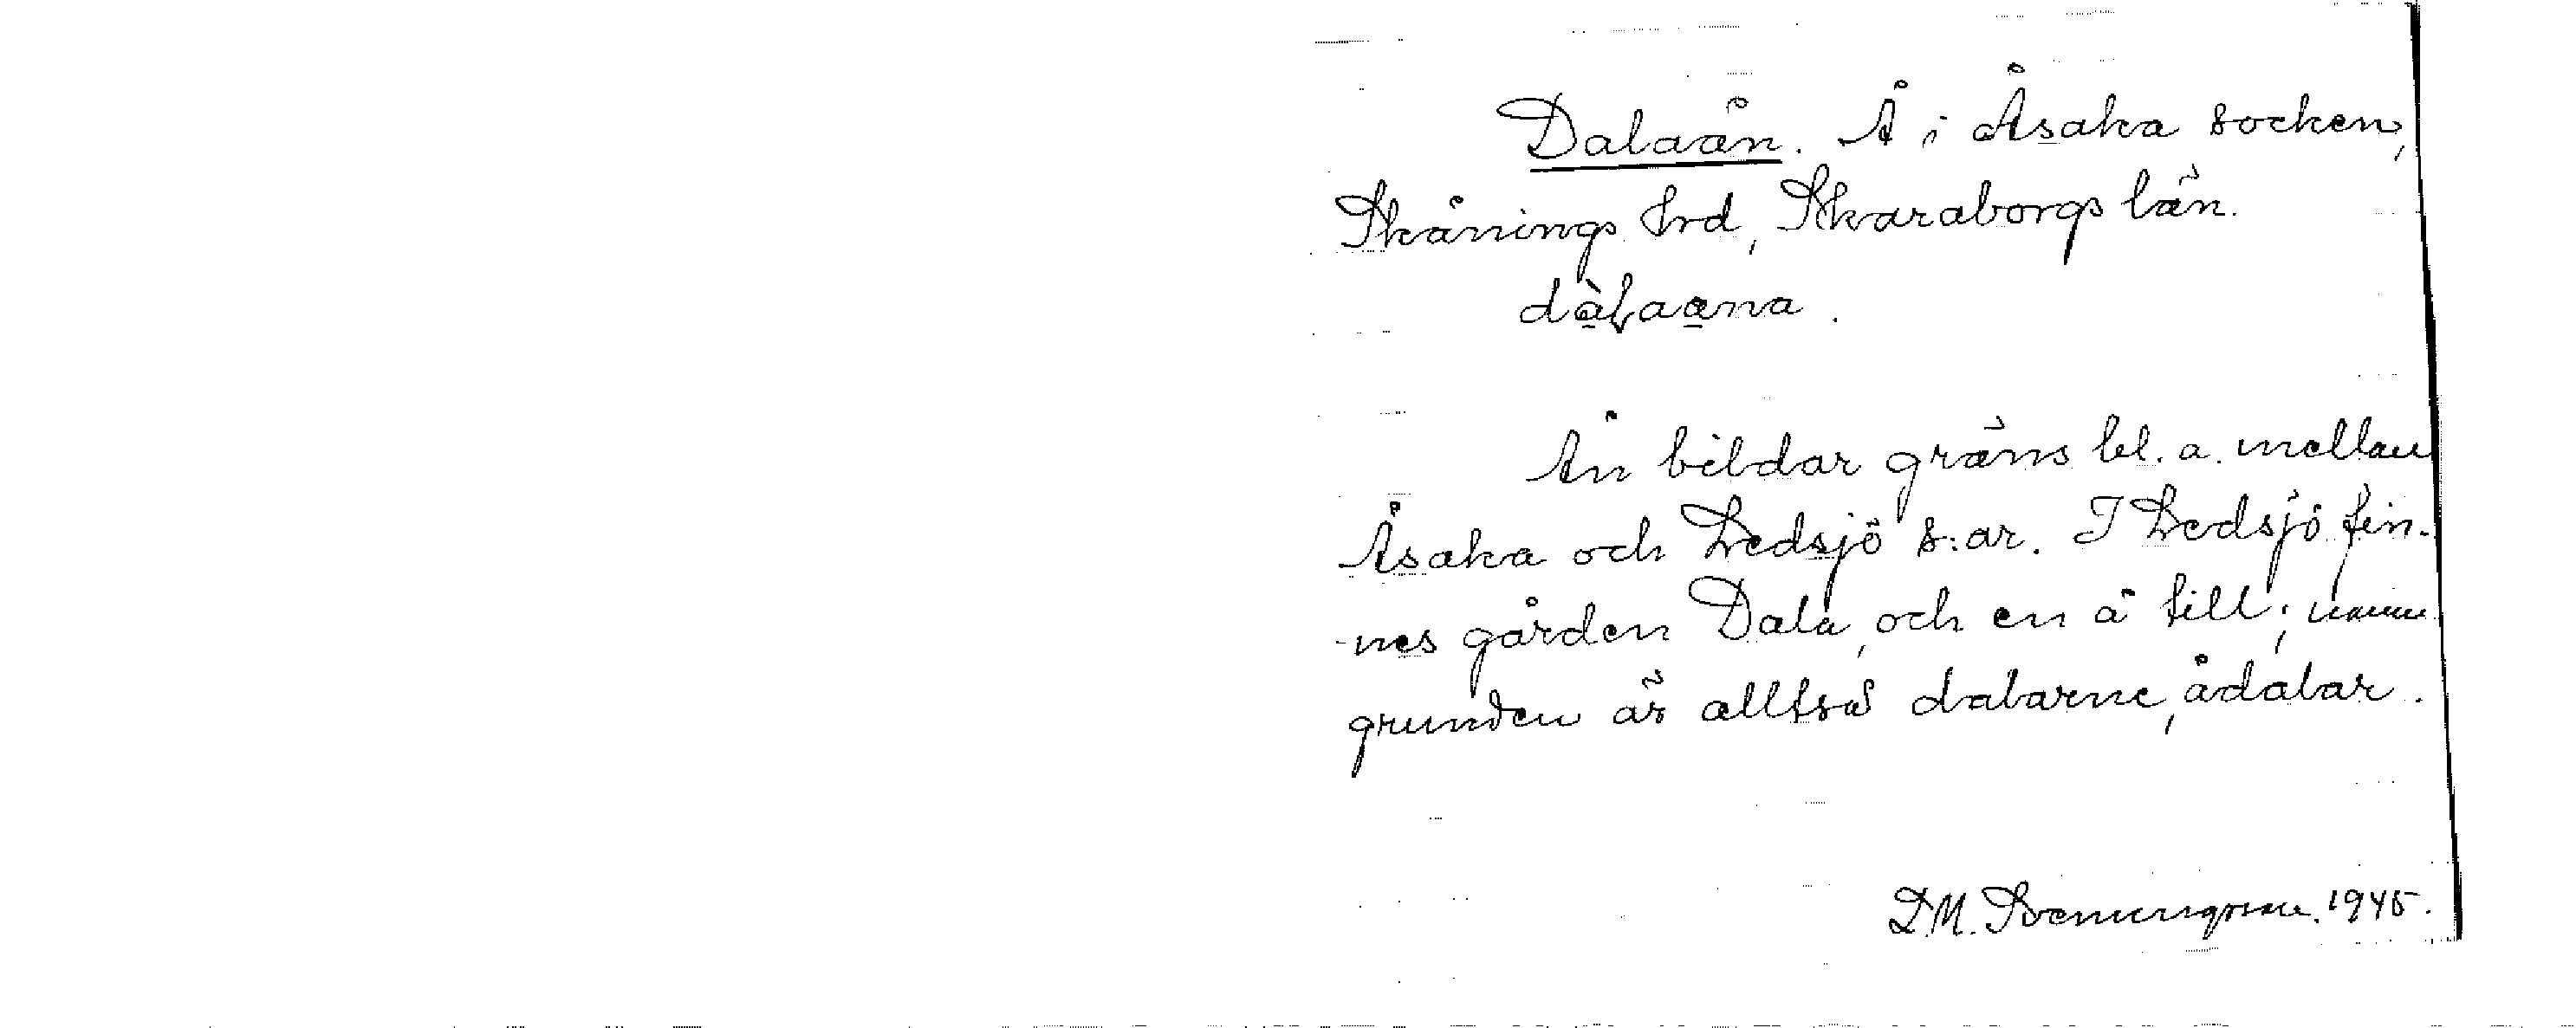 Dalaån. Å i Åsaka socken,
Skånings hrd, Skaraborgs län.
Ån bildar gräns bl. a. mellan
Åsaka och Ledsjö s:ar. I Ledsjö fin-
-nes gården Dala, och en å till; namn
grunden är alltså dalarne, ådalar.
D.M. 1945.